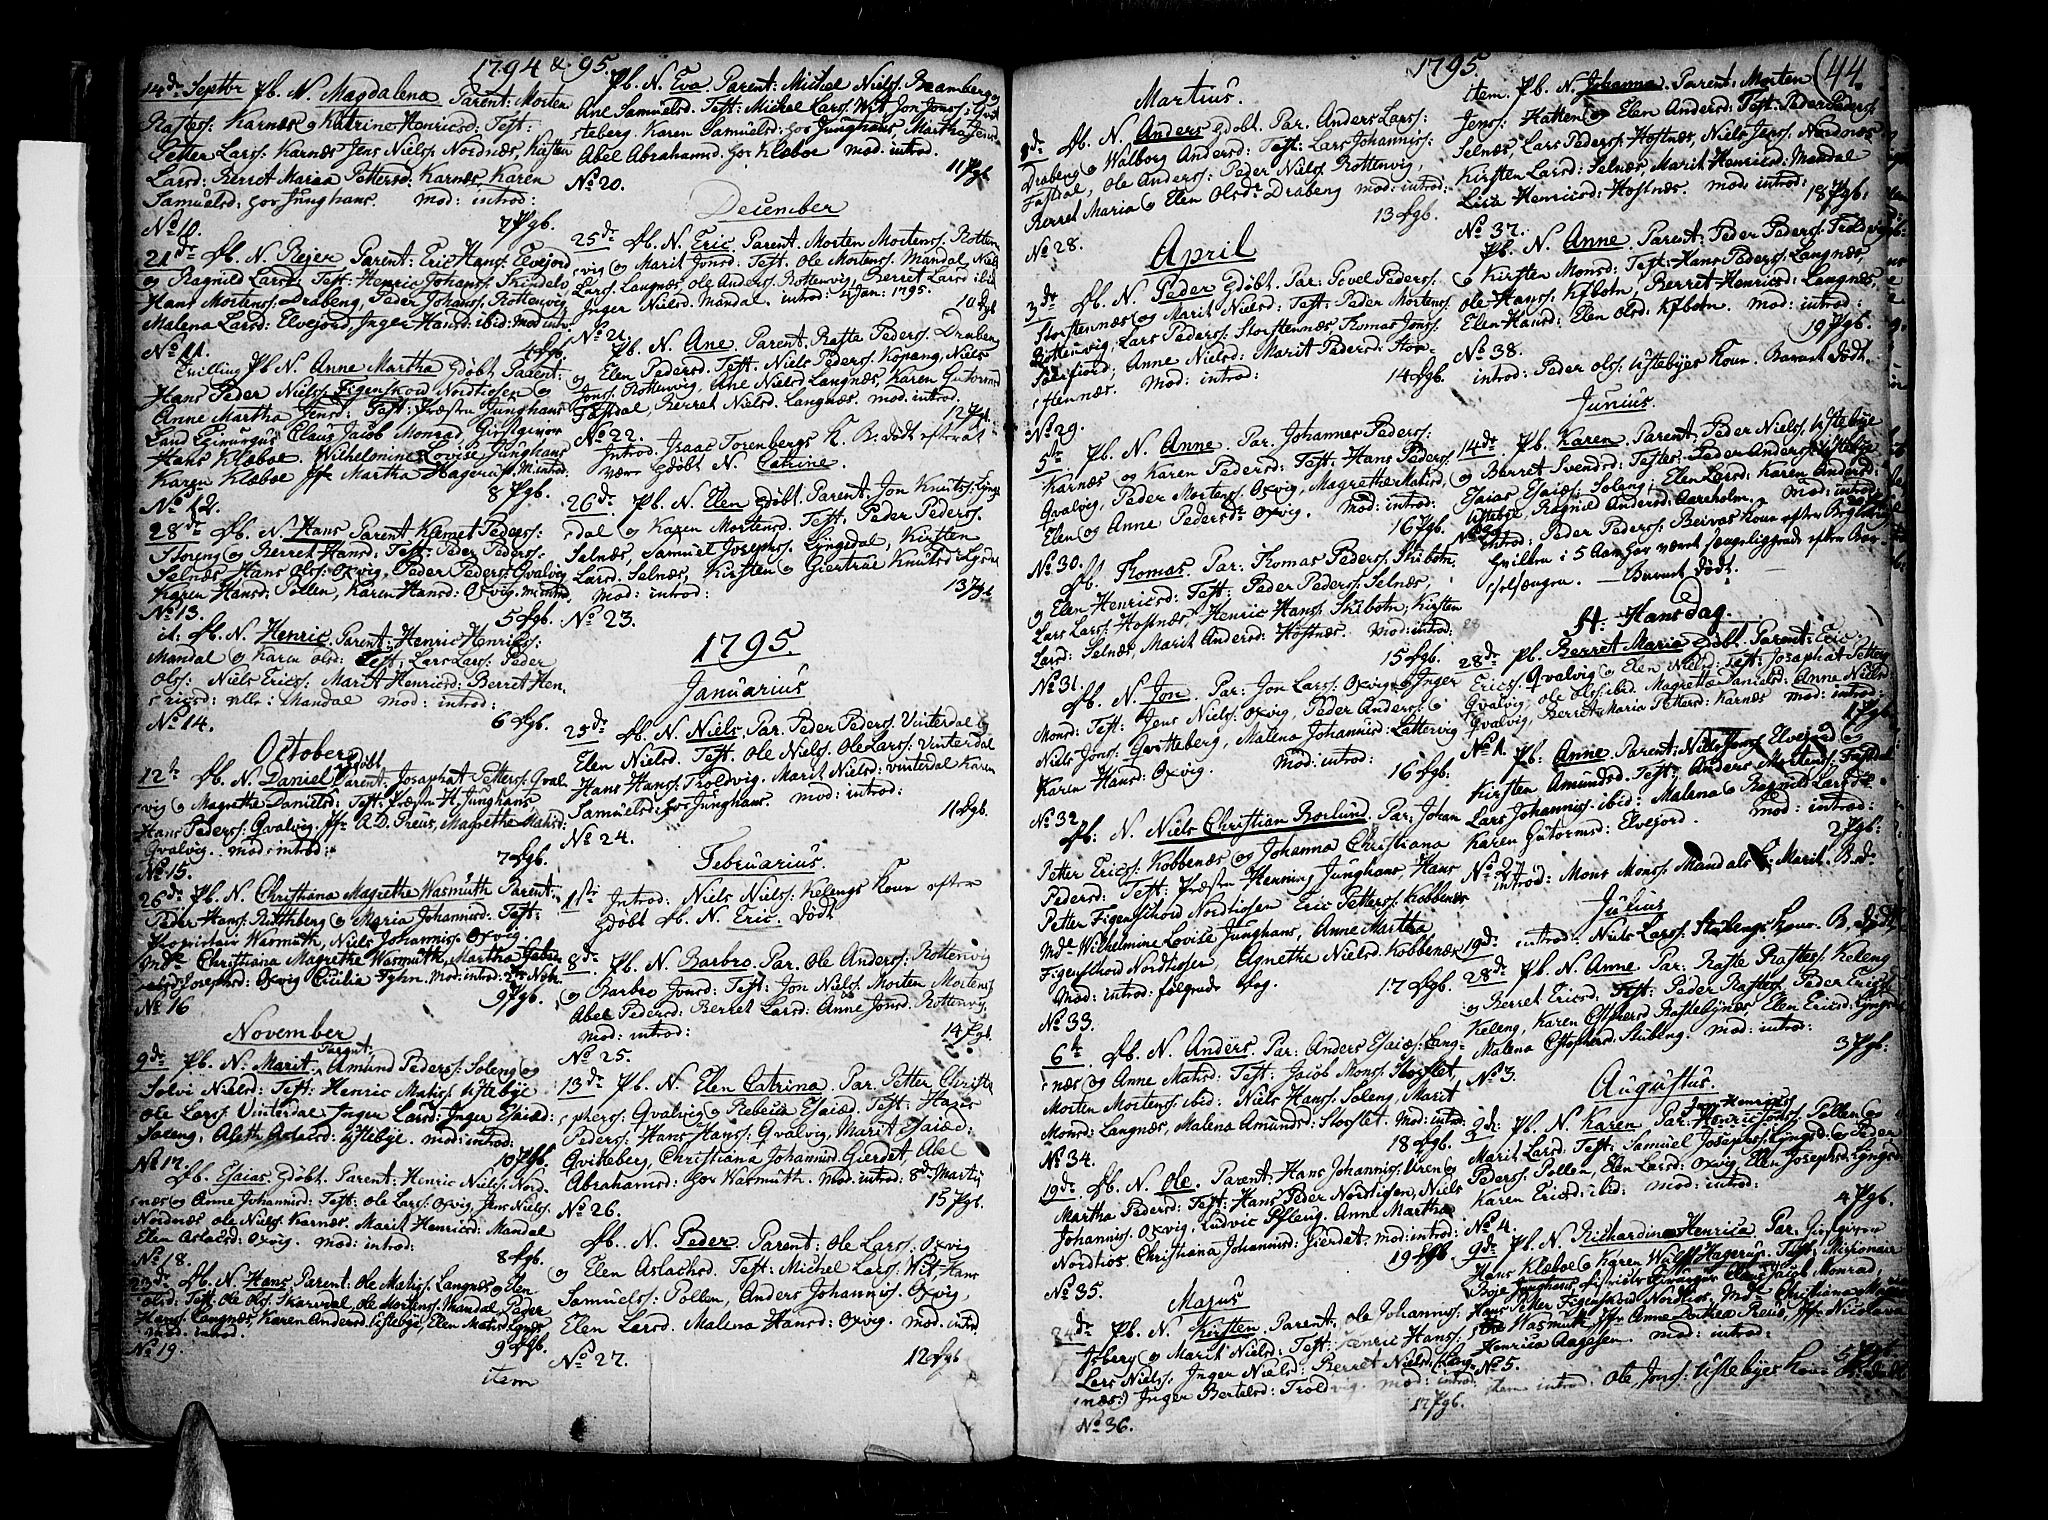 1794 & 95.
14de Septbr Pb. N. Magdalena Parent: Morten
Rastes: Karnæs og Katrine Henricsd: Test:
Petter Lars: Karnæs, Jens Niels: Nordnæs, Kirsten
Larsd: Berret Maria Pettersd: Karnæs, Karen
Samuelsd: hos Junghans. mod: introd:
No 10. 7 Pgb.
21de Db. N. Rejer Parent: Eric Hans: Elvejord
og Ragnild Larsd Test: Henric Johans: Skindelv
Hans Mortens: Drabeng, Peder Johans: Rottenvig
Malena Larsd: Elvejord, Inger Hansd: ibid: mod: intr:
No 11. 4 Dgb.
Tvilling Pb. N. Anne Martha hjdøbt Parent:
Hans Peder Niels: Figenskou Nordtiosen og
Anne Martha Jensd: Test: Præsten Junghans
Land Chirurgus Claus Jacob Monrad, Giestgiver
Hans Klæboe. Wilhelmine Lovise Junghans
Karen Klæboe Jfr Martha Hagerup. M. introd
No 12. 8 Pgb.
28de Db. N. Hans Parent Klemet Peders:
Storeng og Berret Hansd: Test: Peder Peders:
Selnæs, Hans Ols: Oxvig, Peder Peders: Qvalvig
Karen Hansd: Pollen, Karen Hansd: Oxvig. M. introd
No 13. 5 Dgb.
it: Db. N. Henric Parent: Henric Henrics:
Mandal og Karen Olsd: Test: Lars Lars: Peder
Ols: Niels Erics: Marit Henricsd: Berret Hen-
ricsd: alle i Mandal mod: introd:
No 14. 6 Dgb.
October
12te Db. N. Daniel hjdøbt Parent: Josaphat Petters: Qval-
vig og Magrethe Danielsd: Test: Præsten H. Junghans
Hans Peders: Qvalvig. Jfr A.D. Preus, Magrethe Matisd:
Qvalvig. mod: introd:
No 15. 7 Dgb.
26de Pb. N. Christiana Magrethe Wasmuth Parent:
Peder Hans: og Maria Johannisd: Test:
Proprietair Wasmuth, Niels Johannis: Oxvig.
Mde Christiana Magrethe Wasmuth, Martha
Josephsd: Oxvig Cicilia Fyhn. mod: introd: 2de Nobr.
No 16 9 Pgb.
November
9de Pb. N. Marit Parent: Amund Peders: Soleng og
Solvi Nielsd: Test: Henric Matis: Ustebye
Ole Lars: Vinterdal Inger Larsd: Inger Esaisd:
Soleng, Aleth Aslacsd: Ustebye. mod: introd:
No 17. 10 Pgb.
Db. Esaias hjdøbt Parent: Henric Niels: Nord-
næs og Anne Johannisd: Test: Ole Lars: Oxvig, Jens Niels:
Nordnæs Ole Niels: Karnæs. Marit Henricsd: Mandal
Elen Aslacsd: Oxvig. mod: introd:
No 18. 8 Dgb.
23de Db. N. Hans Parent. Ole Matis: Langnæs og Elen
Olsd: Test: Ole Ols: Skarvdal, Ole Mortens: Mandal, Peder
Hans: Langnæs, Karen Andersd: Ustebye, Elen Matisd
mod: introd:
No 19. 9 Dgb.
item
Pb. N. Eva Parent: Michel Niels: Bramberg og
Ane Samuelsd: Test: Michel Lars: Wit, Jon Jons: Qvit-
teberg. Karen Samuelsd: hos Junghans, Martha
Abel Abrahamsd: hos Klæboe mod: introd.
No 20. 11 Pgb.
December
25de Db. N. Eric Parent. Morten Mortens: Rotten-
vig og Marit Jonsd: Test: Ole Mortens: Mandal, Niels
Lars: Langnæs, Ole Anders: Rottenvig, Berret Larsd: ibid
Inger Nielsd: Mandal. introd: 4 Jan: 1795.
No 21. 10 Dgb
Pb. N. Ane Parent. Raste Peders: Drabeng
og Elen Pedersd. Test: Niels Peders: Kopang, Niels
Jons: Rottenvig, Ane Nielsd: Langnæs, Karen Gutormsd
Fastdal, Berret Nielsd: Langnæs. mod: introd.
No 22. 12 Pgb.
Introd. Isaac Torenbergs K. B. dødt efter at
være hjdøbt N. Catrine.
26de Pb. N. Elen hjdøbt Parent. Jon Knuts: Lyngs-
dal og Karen Mortensd. Test: Peder Peders:
Selnæs, Samuel Josephs: Lyngsdal, Kirsten
Larsd: Selnæs, Kirsten og Giertrue Knutsd: Lyngsdal
mod: introd: 13 Pgb
No 23.
1795.
Januarius
25de Db. N. Niels Par. Peder Peders: Vinterdal og
Elen Nielsd: Test. Ole Niels: Ole Lars: Vinterdal
Hans Hans: Troldvig. Marit Nielsd: Vinterdal Karen
Samuelsd: hos Junghans. mod: introd:
No 24. 11 Dgb.
Februarius.
1ste Introd: Niels Niels: Kelengs Kone efter
hjdøbt Db. N. Eric. Dødt
8de Pb. N. Barbro Par. Ole Anders: Rottenvig
og Barbro Jonsd: Test: Jon Niels: Morten Mortens:
Abel Pedersd: Berret Larsd: Anne Jonsd: Rottenvig.
mod: introd: 14 Pgb.
No 25.
13de Pb. N. Elen Catrina Par. Petter Christo-
phers: Qvalvig og Rebecca Esaisd. Test: Hans
Peders: Hans Hans: Qvalvig, Marit Esaisd:
Qvitteberg, Christiana Johannisd: Gierdet, Abel
Abrahamsd: hos Wasmuth. mod: introd: 8de Martij
No 26. 15 Pgb.
Db. N. Peder Parent: Ole Lars: Oxvig
og Elen Aslachsd. Test: Michel Lars: Wit, Hans
Samuels: Pollen, Anders Johannis: Oxvig,
Elen Larsd. Malena Hansd: Oxvig. mod. introd.
No 27. 12 Dgb
1795. (44.
Martius.
8de Db. N. Anders hjdøbt. Par. Anders Lars:
Drabeng og Walborg Andersd: Test: Lars Johannis:
Fastdal, Ole Anders: Peder Niels: Rottenvig,
Berret Maria og Elen Olsdr Drabeng mod: introd:
No 28. 13 Dgb.
April
3de Db. N. Peder hjdøbt. Par: Povel Peders:
Storstennæs og Marit Nielsd: Test: Peder Mortens:
Rottenvig, Lars Peders: Storstennæs, Thomas Jons:
Anne Nielsd: Marit Pedersd: Stor-
stennæs. Mod: introd: 14 Dgb.
No 29.
5te Pb. N. Anne Par. Johannes Peders:
Karnæs og Karen Pedersd: Test: Hans Peders:
Qvalvig, Peder Mortens: Oxvig, Magrethe Matisd,
Elen og Anne Pedersdr Oxvig. Mod: introd:
16 Pgb.
No 30. Db. Thomas. Par: Thomas Peders: Skibotn,
og Elen Henricsd: Test: Peder Peders: Selnæs,
Lars Lars: Hostnæs, Henric Hans: Skibotn, Kirsten
Larsd: Selnæs, Marit Andersd: Hostnæs. Mod: introd:
15 Dgb.
No 31. Db. N. Jon. Par: Jon Lars: Oxvig og Inger
Monsd: Test: Jens Niels: Oxvig, Peder Anders:
Niels Jons: Qvitteberg, Malena Johannisd: Lattervig
Karen Hansd: Oxvig. mod: introd:
16 Dgb.
No 32
Db: N. Niels Christian Borlund. Par: Johan
Petter Erics: Kobbenæs og Johanna Christiana
Pedersd: Test: Præsten Henning Junghans, Hans
Petter Figenschou Nordtiosen Eric Petters: Kobbenæs
Mde Wilhelmine Lovise Junghans, Anne Martha
Figenschou Nordtiosen Agnethe Nielsd: Kobbenæs
Mod: introd: følgende Dag. 17 Dgb.
No 33.
6te Db. N. Anders. Par: Anders Esaiæs: Lang-
næs og Anne Matisd: Test: Jacob Mons: Storslet,
Morten Mortens: ibid: Niels Hans: Soleng, Marit
Monsd: Langnæs, Malena Amundsd: Storslet. Mod: introd:
18 Dgb.
No 34.
19de Db. N. Ole. Parent: Hans Johannis: Uren og
Martha Pedersd: Test: Hans Peder Nordtiosen, Niels
Johannis: Oxvig. Ludvic Pfleug. Anne Martha
Nordtios. Christiana Johannisd: Gierdet. mod: introd:
19 Dgb
No 35.
Majus
24de Pb. N. Kirsten. Parent: Ole Johannis:
Isberg og Marit Nielsd: Test: Henric Hans:
Lars Niels: Inger Nielsd: Berret Nielsd: Lang-
næs) Inger Bertelsd: Troldvig. mod: introd:
17 Pgb.
No 36.
item. Pb. N. Johanna. Parent: Morten
Jens: Hatten og Elen Andersd: Test: Peder Peders:
Selnæs, Lars Peders: Hostnæs, Niels Jens: Nordnæs
Kirsten Larsd: Selnæs, Marit Henricsd: Mandal
Henricsd: Hostnæs. Mod: introd:
18 Pgb:
No 37.
Pb. N. Anne Parent: Peder Peders: Troldvig
og Kirsten Monsd: Test: Hans Peders: Langnæs,
Ole Hans: Kibotn, Berret Henricsd: Langnæs,
Elen Hansd: Elen Olsd: Kibotn. Mod: introd:
19 Pgb.
No 38.
introd: Peder Ols: Ustebyes Kone. Barnet dødt.
Junius.
14de Pb. Karen. Parent: Peder Niels: Ustebye
og Berret Svendsd: Testes: Peder Anders: Ustebye
Esaias Esaiæs: Soleng, Elen Larsd: Karen Andersd:
Ustebye, Ragnild Andersd: Aareholm. Mod: introd:
No 39. 20 Pgb
introd: Peder Peders: Beivas Kone efter
hvilken i 5 Aar har været sengeliggende efter Bar-
selsengen. Barnet dødt.
St. Hansdag.
28de Pb. Berret Maria hjdøbt. Parent: Eric
Erics: Qvalvig og Elen Nielsd: Test: Josaphat Petters:
Qvalvig, Ole Ols: ibid. Magrethe Danielsd: Anne Nielsd
Qvalvig. Berret Maria Pettersd: Karnæs mod: introd:
1 Pgb
No 1. Pb. Anne Parent: Niels Jons: Elvejord og
Kirsten Amundsd Test: Anders Mortens: Fastdal
Lars Johannis: ibid: Malena og Ragnild Larsdr
Karen Gutormsd: Elvejord. Mod: introd:
2 Pgb:
No 2 introd: Mons Mons: Mandals K: Marit. B. d.
Julius
19de introd: Niels Lars: Stubengs Kone. B. dødt.
28de Pb. N. Anne Par: Raste Rastes: Keleng
og Berret Ericsd: Test: Peder Rastes: Peder Erics:
Keleng, Karen Cstophersd: Rastebynes, Elen Ericsd: Lyngsdal
Malena Cstophersd: Stubeng. Mod: introd:
3 Pgb:
No 3.
Augustus.
2de: Pb. N. Karen Par: Jon Henrics: Pollen og
Marit Larsd: Test: Samuel Josephs: Lyngsd: og Peder
Peders: Pollen, Elen Larsd: Oxvig, Elen Josephsd: Lyngsd:
Karen Ericsd: ibid: Mod: introd:
4 Pgb.
No 4.
9de Pb. N. Richardine Henrica Par: Giestgiver
Hans Klæboe og Karen Wulff Hagerup. Test: Missionair
Boje Junghans, Districts Chirurger Claus Jacob Monrad,
Hans Petter Figenskou Nordtios, Mde Christiana
Wasmuth Jfr Anne Dorthea Preus, Jfr Nicolava
Henrica Aagesen. mod: introd:
5 Pgb
No 5. item introd: Ole Jons: Ustebyes Kone B: dødt